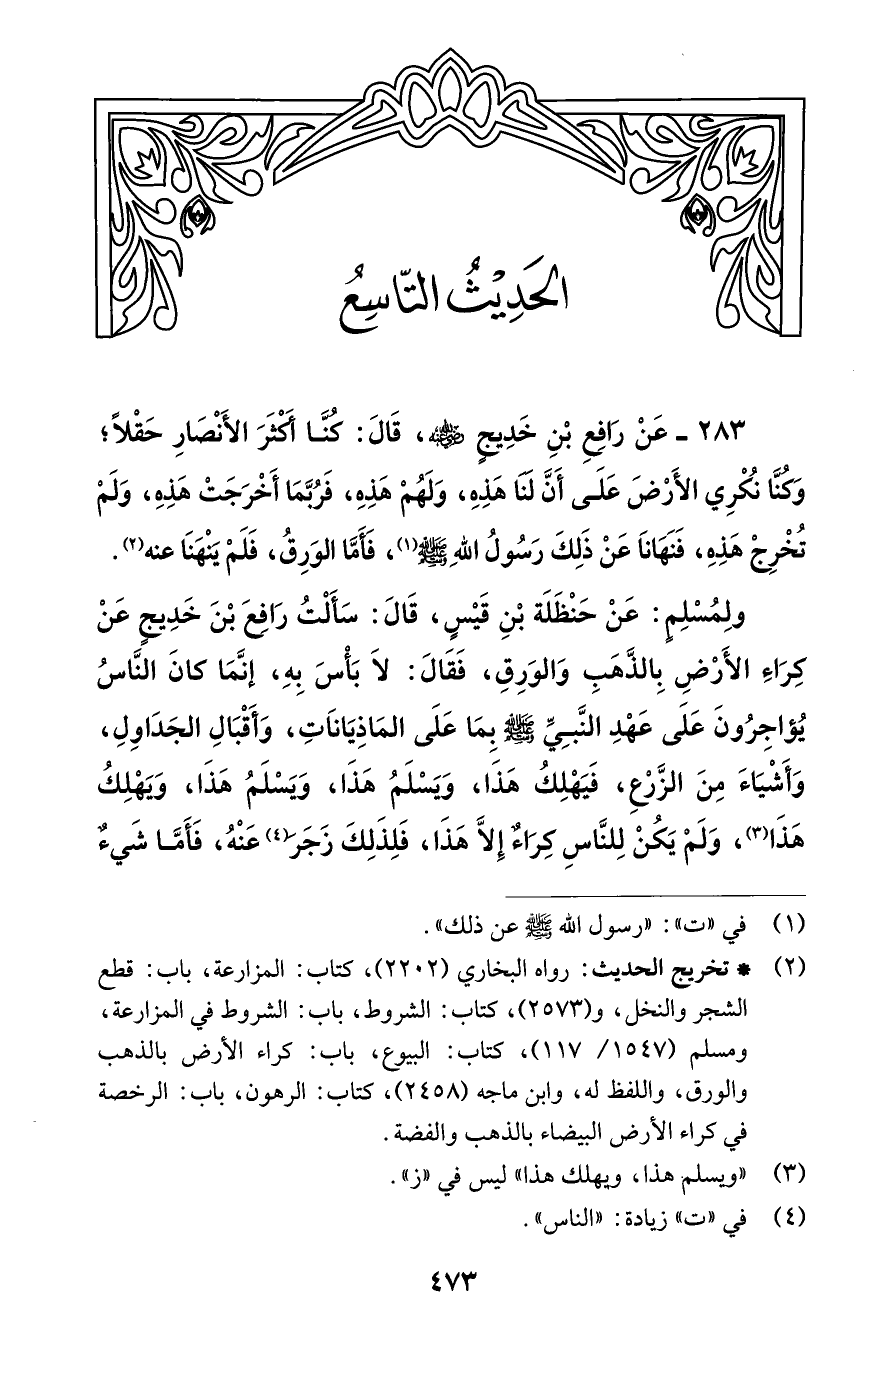 الحَدِيْثُ التَّاسِعُ
٢٨٣ - عَنْ رَافِعِ بْنِ خَدِيجٍ ﵁، قَالَ: كُنَّا أَكْثَرَ الأَنْصَارِ حَقْلاً؛
وَكُنَّا نُكْرِي الأَرْضَ عَلَى أَنَّ لَنَا هَذِهِ، وَلَهُمْ هَذِهِ، فَرُبَّمَا أَخْرَجَتْ هَذِهِ، وَلَمْ
تُخْرِجْ هَذِهِ، فَنَهَانَا عَنْ ذَلِكَ رَسُولُ اللهِ ﷺ(١)، فَأَمَّا الوَرِقُ، فَلَمْ يَنْهَنَا عنه(٢).
ولِمُسْلِمٍ: عَنْ حَنْظَلَة بْنِ قَيْسٍ، قَالَ: سَأَلْتُ رَافِعَ بْنَ خَدِيجٍ عَنْ
كِرَاءِ الأَرْضِ بِالذَّهَبِ وَالوَرِقِ، فَقَالَ: لاَ بَأْسَ بِهِ، إنَّمَا كانَ النَّاسُ
يُؤاجِرُونَ عَلَى عَهْدِ النَّبِيِّ ﷺ بِمَا عَلَى المَاذِيَانَاتِ، وَأَقْبَالِ الجَدَاوِلِ،
وَأَشْيَاءَ مِنَ الزَّرْعِ، فَيَهْلِكُ هَذَا، وَيَسْلَمُ هَذَا، وَيَسْلَمُ هَذَا، وَيَهْلِكُ
هَذَا(٣)، وَلَمْ يَكُنْ لِلنَّاسِ كِرَاءٌ إِلاَّ هَذَا، فَلِذَلِكَ زَجَرَ(٤) عَنْهُ، فَأَمَّا شَيءٌ
(١) في «ت»: «رسول الله ﷺ عن ذلك».
(٢) * تخريج الحديث: رواه البخاري (٢٢٠٢)، كتاب: المزارعة، باب: قطع
الشجر والنخل، و(٢٥٧٣)، كتاب: الشروط، باب: الشروط في المزارعة،
ومسلم (١٥٤٧/ ١١٧)، كتاب: البيوع، باب: كراء الأرض بالذهب
والورق، واللفظ له، وابن ماجه (٢٤٥٨)، كتاب: الرهون، باب: الرخصة
في كراء الأرض البيضاء بالذهب والفضة.
(٣) «ويسلم هذا، ويهلك هذا» ليس في «ز».
(٤) في «ت» زيادة: «الناس».
٤٧٣